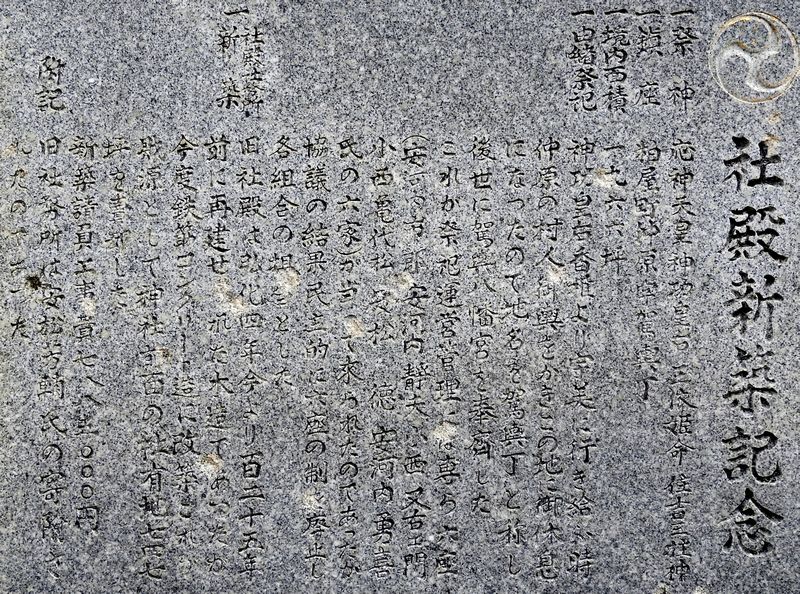 社殿新築記念
一祭神 応神天皇 神功皇后 玉依姫命 住吉三柱神
一鎮座 粕屋町仲原字駕輿丁
一境内面積 一九六六坪
一由緒祭記 神功皇后香椎より宇美に行き給ふ時
仲原の村人御輿をかきこの地に御休息
になったので地名を駕輿丁と称し
後世に駕輿八幡宮を奉斎した
これが祭祀運営管理には専ら六座
安河内静夫 小西又右エ門
小西亀代松 安松 徳 安河内勇喜
氏の六家)が当って来られたのであったが
協議の結果民主的に六座の制を廃止し
各組合の組をとした
社殿社務所
一新築 旧社殿は弘化四年今より百二十五年
前に再建せられた木造であったが
今度鉄筋コンクリート造に改築これが
財源として神社前面の社有地七四七
坪を売却した
新築諸員工事 壹七八八至000円
附記 旧社務所は安松芳鯆氏の寄附さ
れたのであった